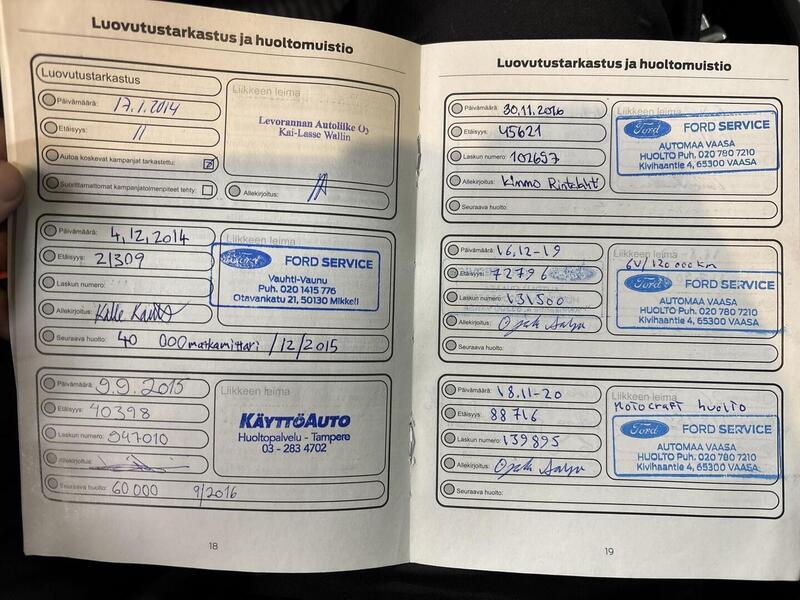 Luovutustarkastus ja huoltomuistio
Luovutustarkastus
Päivämäärä: 17.1.2014
Etäisyys: 11
Autoa koskevat kampanjat tarkastettu:
Suorittamattomat kampanjatoimenpiteet tehty:
Liikkeen leima
Levorannan Autoliike Oy
Kai-Lasse Wallin
Allekirjoitus:
Päivämäärä: 4.12.2014
Etäisyys: 21309
Laskun numero:
Allekirjoitus: Kalle
Seuraava huolto: 40 000 matkamittari /12/2015
Liikkeen leima
Ford FORD SERVICE
Vauhti-Vaunu
Puh. 020 1415 776
Otavankatu 21, 50130 Mikkeli
Päivämäärä: 9.9.2015
Etäisyys: 40398
Laskun numero: 947010
Allekirjoitus:
Seuraava huolto: 60 000 9/2016
Liikkeen leima
KÄYTTÖAUTO
Huoltopalvelu - Tampere
03 - 283 4702
18
Luovutustarkastus ja huoltomuistio
Päivämäärä: 30.11.2016
Etäisyys: 45621
Laskun numero: 102657
Allekirjoitus: Kimmo Rintalahti
Seuraava huolto:
Liikkeen leima
Ford FORD SERVICE
AUTOMAA VAASA
HUOLTO Puh. 020 780 7210
Kivihaantie 4, 65300 VAASA
Päivämäärä: 16.12-19
Etäisyys: 72796
Laskun numero: 131500
Allekirjoitus:
Seuraava huolto:
Liikkeen leima
6V/120 000 km
Ford FORD SERVICE
AUTOMAA VAASA
HUOLTO Puh. 020 780 7210
Kivihaantie 4, 65300 VAASA
Päivämäärä: 18.11-20
Etäisyys: 88716
Laskun numero: 139895
Allekirjoitus:
Seuraava huolto:
Liikkeen leima
Motocraft huolto
Ford FORD SERVICE
AUTOMAA VAASA
HUOLTO Puh. 020 780 7210
Kivihaantie 4, 65300 VAASA
19